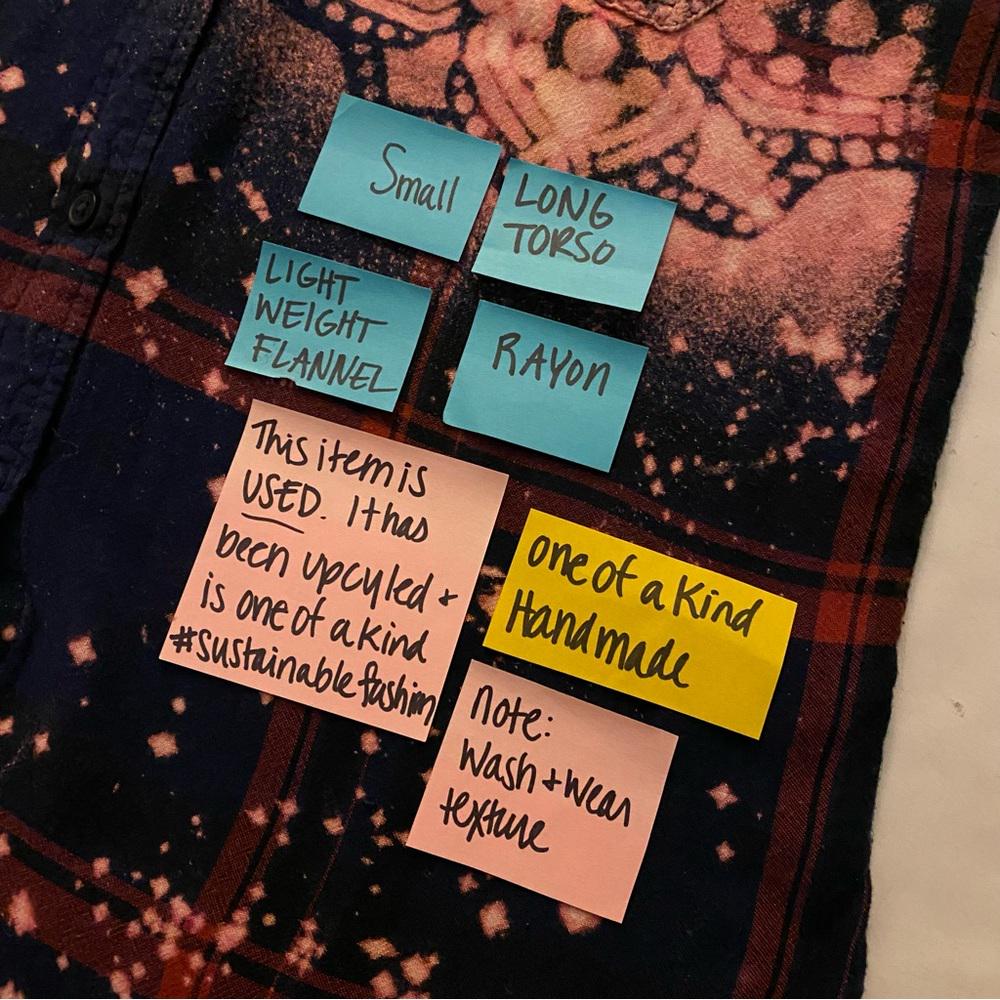 Small
LONG
TORSO
LIGHT
WEIGHT
FLANNEL
RAYON
This item is
USED. It has
been upcyled +
is one of a kind
#sustainable fashion
one of a kind
Handmade
note:
Wash + Wear
texture